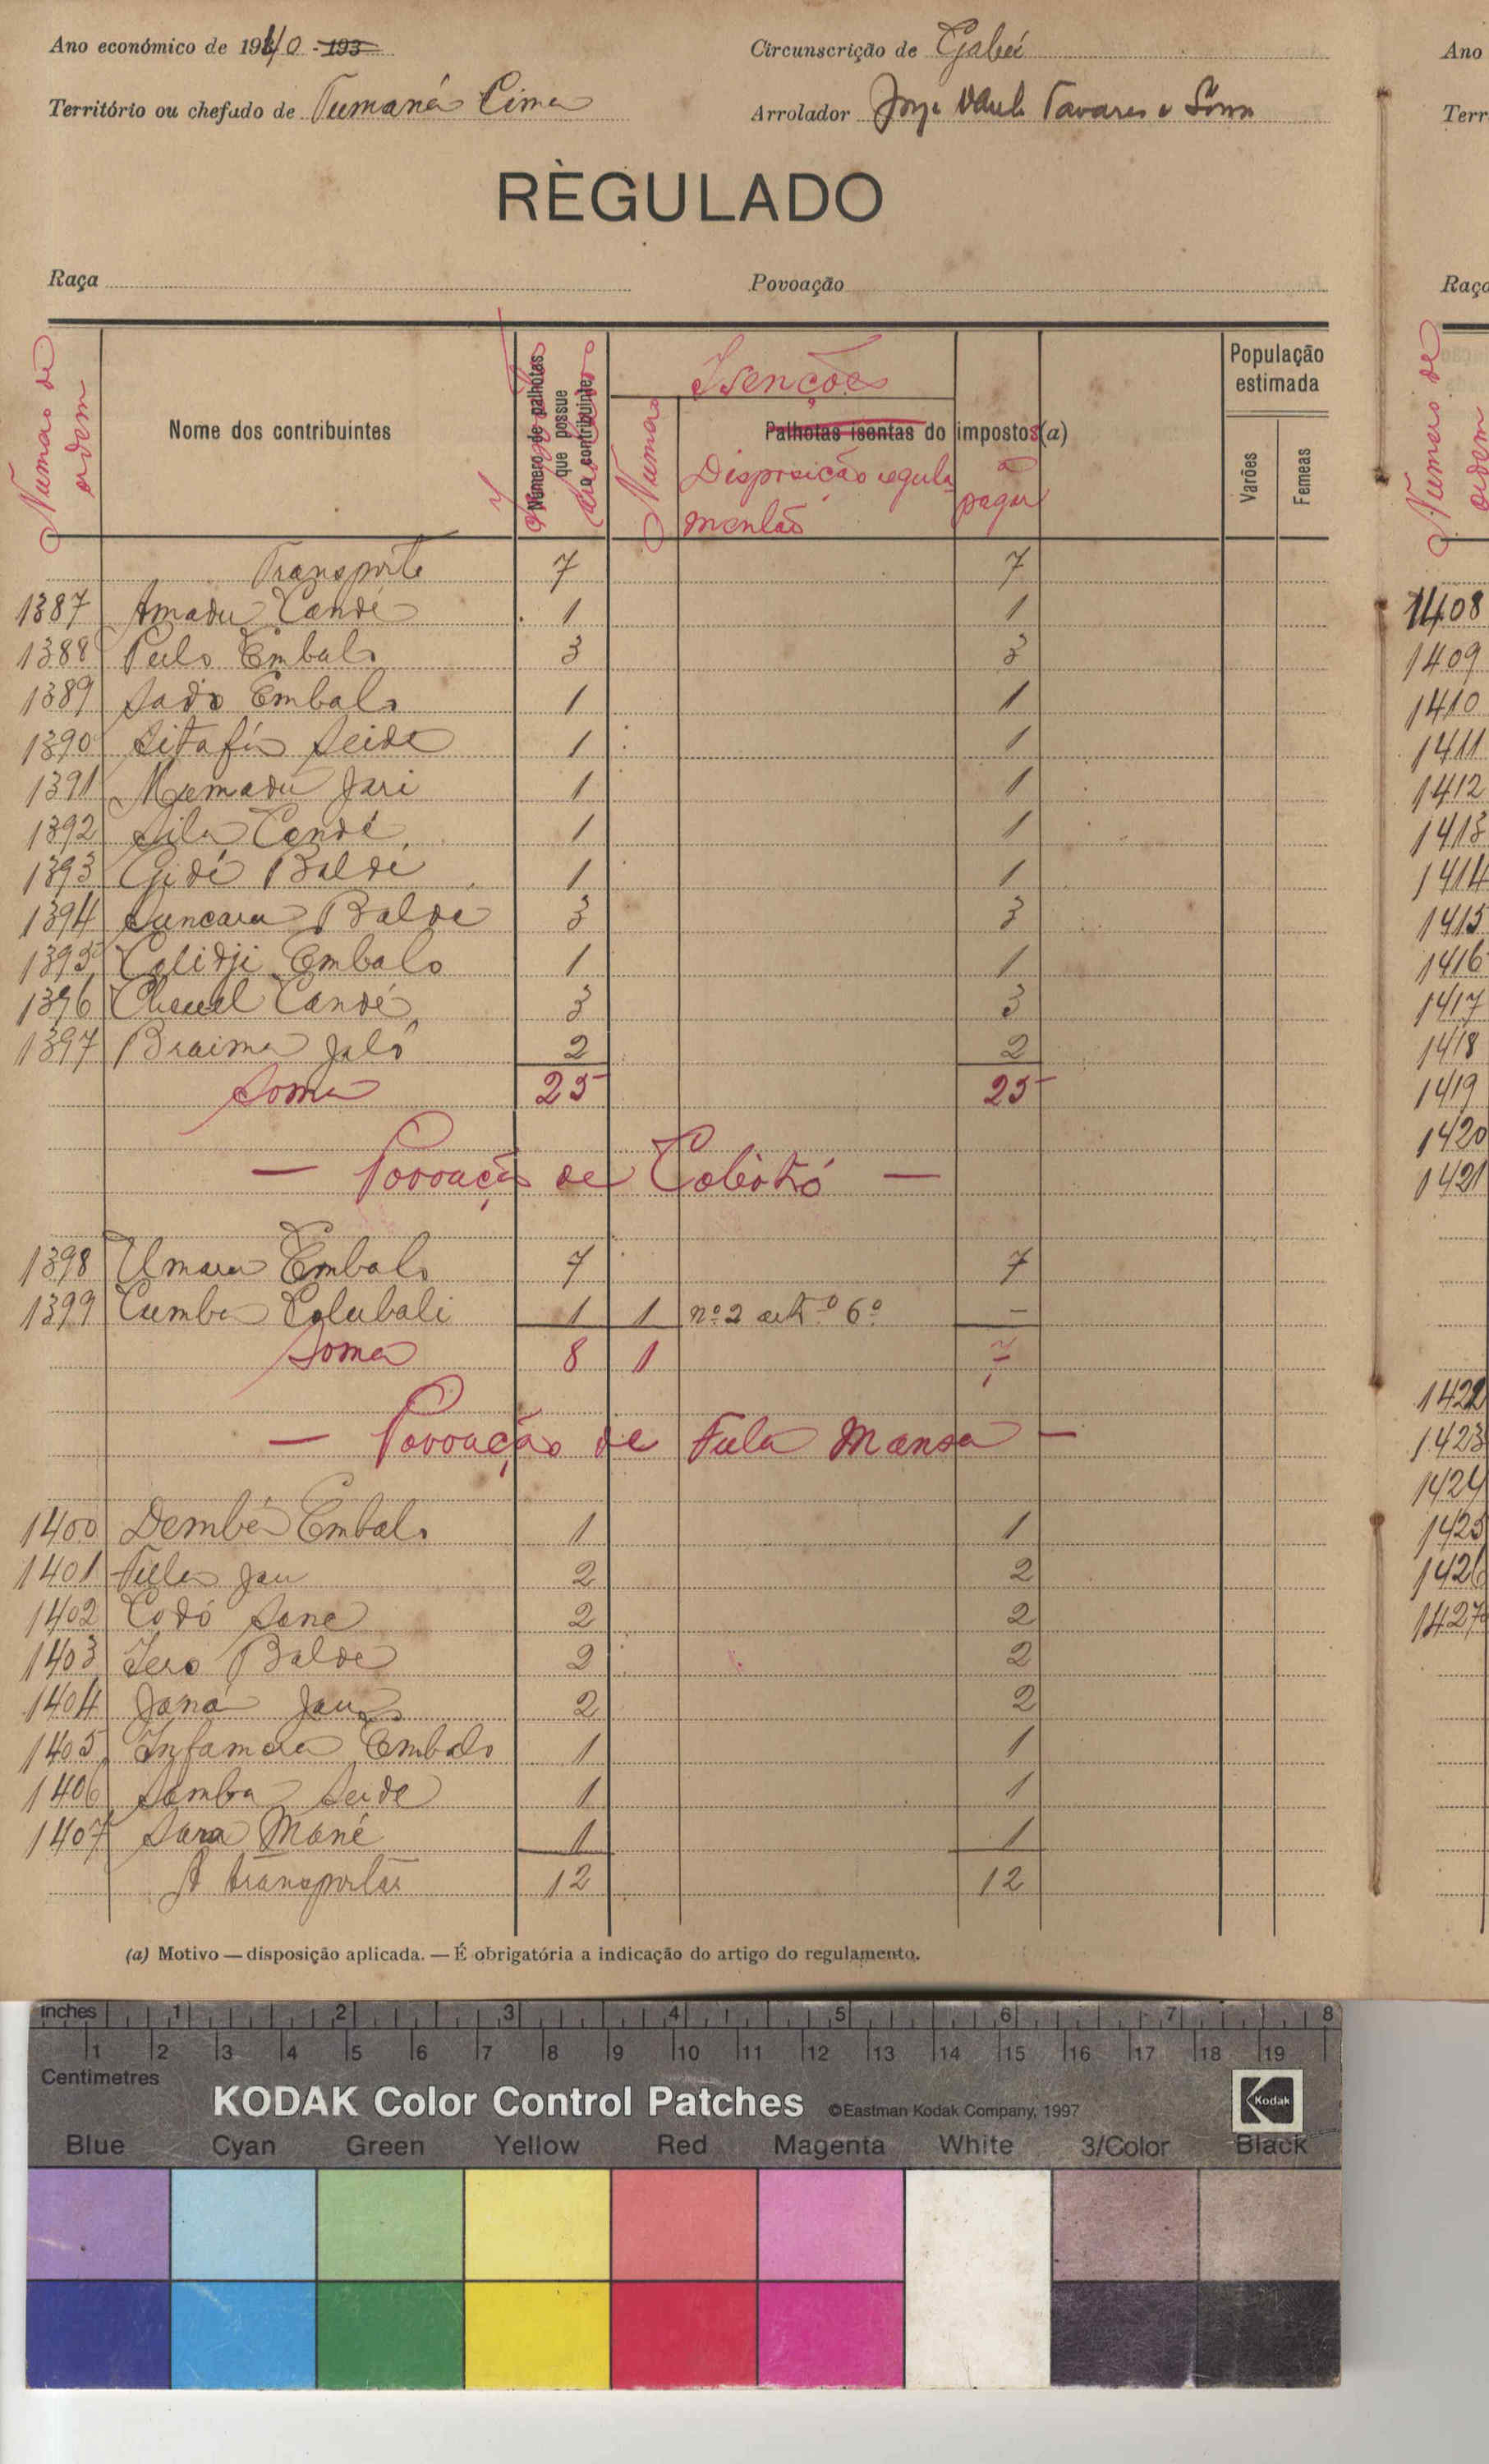 Ano económico de 1940 - 193
Circunscrição de Gabú
Território ou chefado de Tumaná Cima
Arrolador Jorge Tavares e
RÈGULADO
Raça
Povoação
Numero de ordem
Nome dos contribuintes
Número de palhotas que possue o contribuinte
Isenções
Numero
Palhotas isentas do impostos (a)
Disposição regulamentão
a pagar
População estimada
Varões
Femeas
Transporte 7 7
1387 Amadu Candé 1 1
1388 Pulo Embalo 3 3
1389 Sado Embalo 1 1
1390 Sitafá Seide 1 1
1391 Mamadu Jari 1 1
1392 Sila Candé 1 1
1393 Gidé Balde 1 1
1394 Suncaru Balde 3 3
1395 Colidji Embalo 1 1
1396 Candé 3 3
1397 Braima Jaló 2 2
Soma 25 25
— Povoação de —
1398 Umaru Embalo 7 7
1399 Cumba Colubali 1 1 nº 2 artº 6º –
Soma 8 1 7
— Povoação de Fula Mansa —
1400 Dembá Embalo 1 1
1401 Fula Jau 2 2
1402 Codó Sane 2 2
1403 Iero Balde 2 2
1404 Janá Jau 2 2
1405 Infamara Embalo 1 1
1406 Samba Seide 1 1
1407 Sara Mané 1 1
A transportar 12 12
(a) Motivo — disposição aplicada. — É obrigatória a indicação do artigo do regulamento.
Ano
Terr
Raça
Numero de ordem
1408
1409
1410
1411
1412
1413
1414
1415
1416
1417
1418
1419
1420
1421
1422
1423
1424
1425
1426
1427
inches 1 2 3 4 5 6 7 8
1 2 3 4 5 6 7 8 9 10 11 12 13 14 15 16 17 18 19
Centimetres
KODAK Color Control Patches ©Eastman Kodak Company, 1997 Kodak
Blue Cyan Green Yellow Red Magenta White 3/Color Black